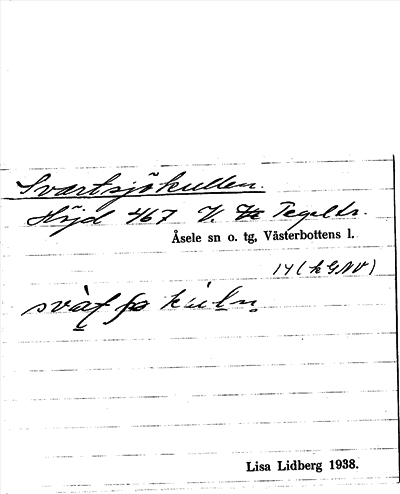 Svartsjökullen.
Höjd 467 V. Tegeltr.
Åsele sn o. tg, Västerbottens l.
14 (k GNV)
Lisa Lidberg 1938.